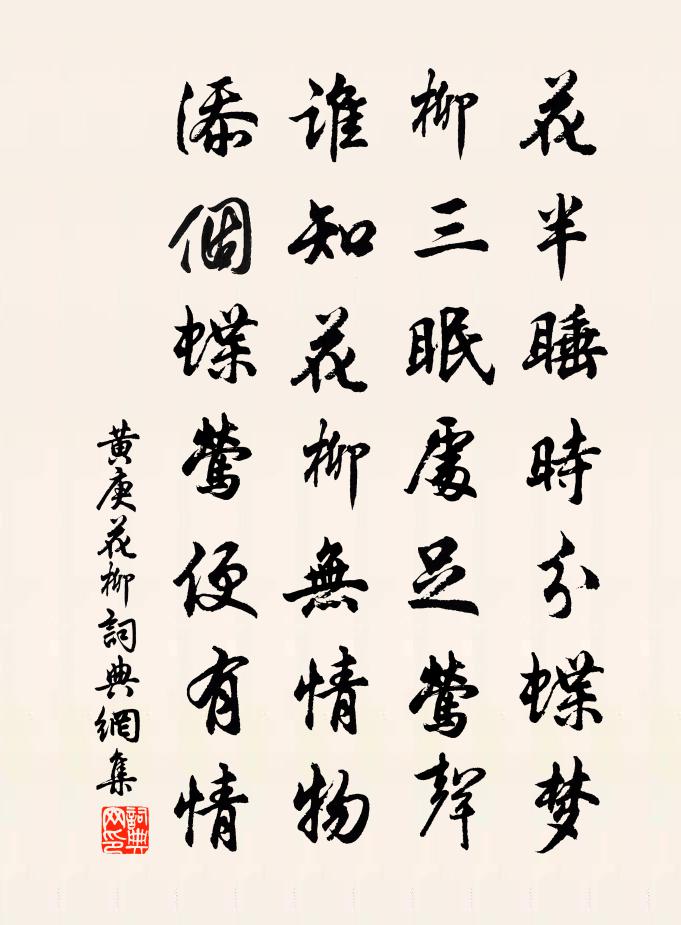 花半睡時分蝶梦
柳三眠處足鶯聲
誰知花柳無情物
添個蝶鶯便有情
黄庚花柳詞典網集
詞典網印